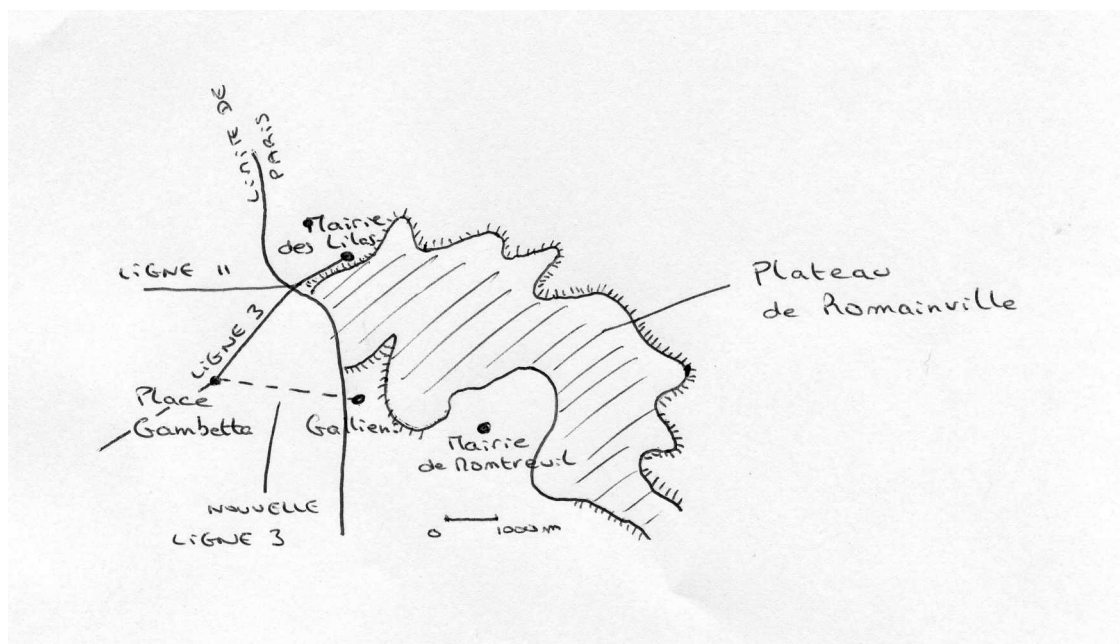 LIMITE DE
PARIS
Mairie
des Lilas
LIGNE 11
Plateau
de Romainville
LIGNE 3
Place
Gambetta
Gallieni
Mairie
de Montreuil
NOUVELLE
LIGNE 3
0 1000 m